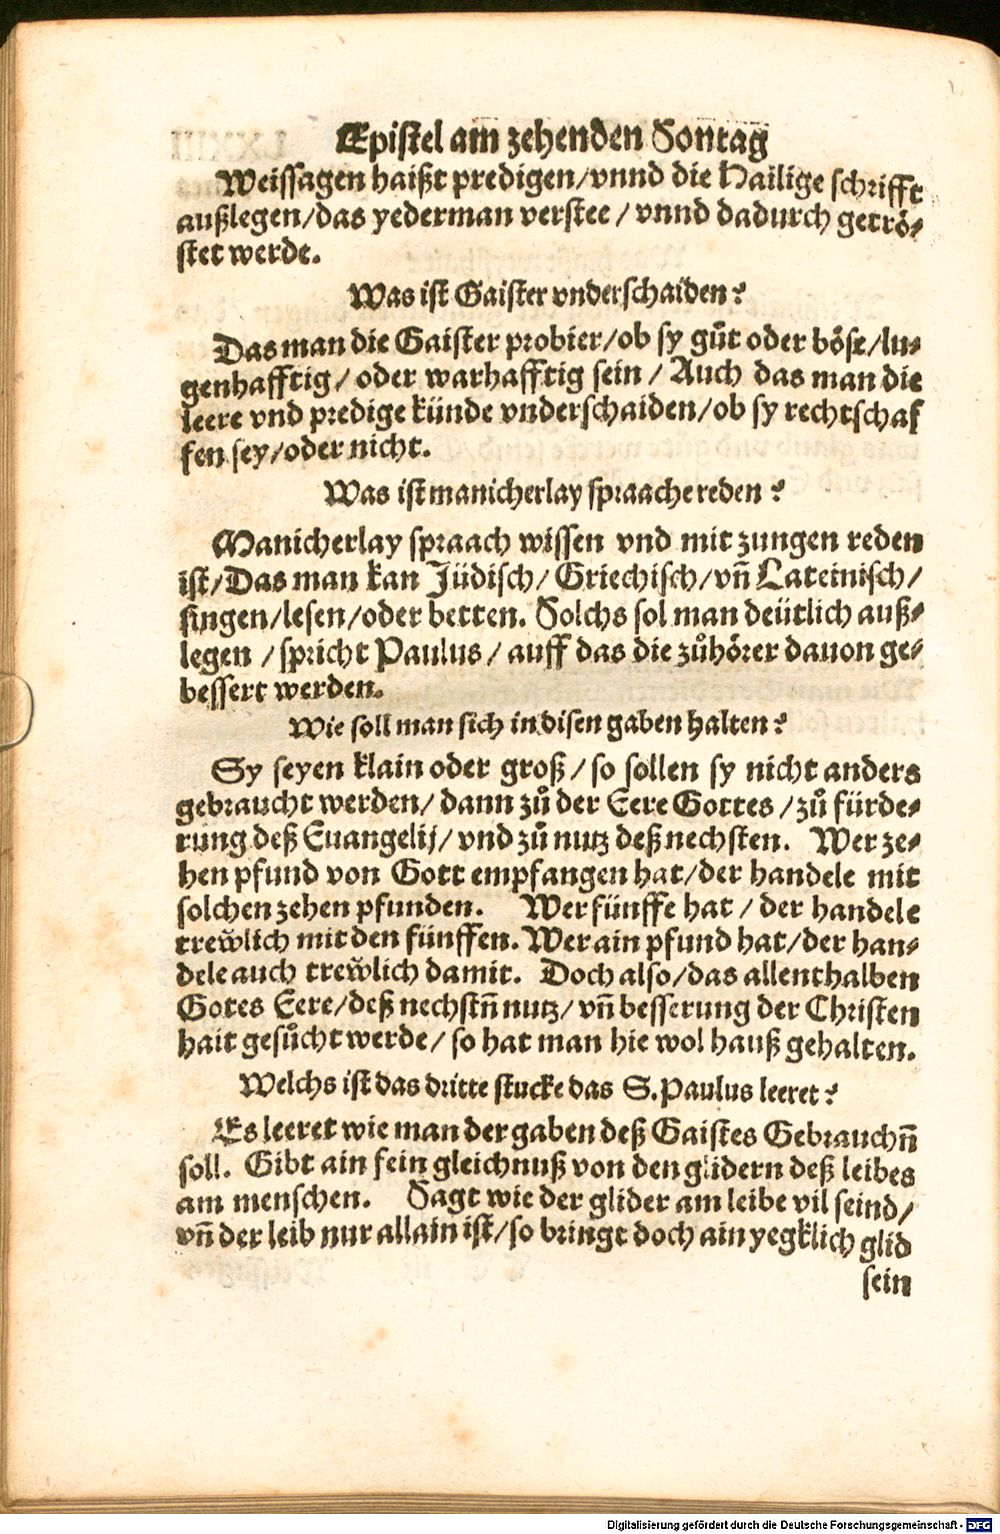 Epistel am zehenden Sontag
Weissagen haißt predigen/vnnd die Hailige schrifft
außlegen/das yederman verstee / vnnd dadurch getrö⸗
stet werde.
Was ist Gaister vnderschaiden?
Das man die Gaister probier/ob sy gůt oder böse/lu⸗
genhafftig/ oder warhafftig sein / Auch das man die
leere vnd predige künde vnderschaiden/ob sy rechtschaf
fen sey/oder nicht.
Was ist manicherlay spraache reden?
Manicherlay spraach wissen vnd mit zungen reden
ist/Das man kan Jüdisch/ Griechisch/vñ Lateinisch/
singen/lesen/oder betten. Solchs sol man deütlich auß⸗
legen / spricht Paulus / auff das die zůhörer dauon ge⸗
bessert werden.
Wie soll man sich in disen gaben halten?
Sy seyen klain oder groß / so sollen sy nicht anders
gebraucht werden/ dann zů der Eere Gottes / zů fürde⸗
rung deß Euangelij/ vnd zů nutz deß nechsten. Wer ze⸗
hen pfund von Gott empfangen hat/der handele mit
solchen zehen pfunden. Wer fünffe hat / der handele
trewlich mit den fünffen. Wer ain pfund hat/der han⸗
dele auch trewlich damit. Doch also/das allenthalben
Gotes Eere/deß nechstñ nutz/ vñ besserung der Christen
hait gesůcht werde/ so hat man hie wol hauß gehalten.
Welchs ist das dritte stucke das S. Paulus leeret?
Es leeret wie man der gaben deß Gaistes Gebrauchñ
soll. Gibt ain fein gleichnuß von den glidern deß leibes
am menschen. Sagt wie der glider am leibe vil seind/
vñ der leib nur allain ist/so bringt doch ain yegklich glid
sein
Digitalisierung gefördert durch die Deutsche Forschungsgemeinschaft - DFG